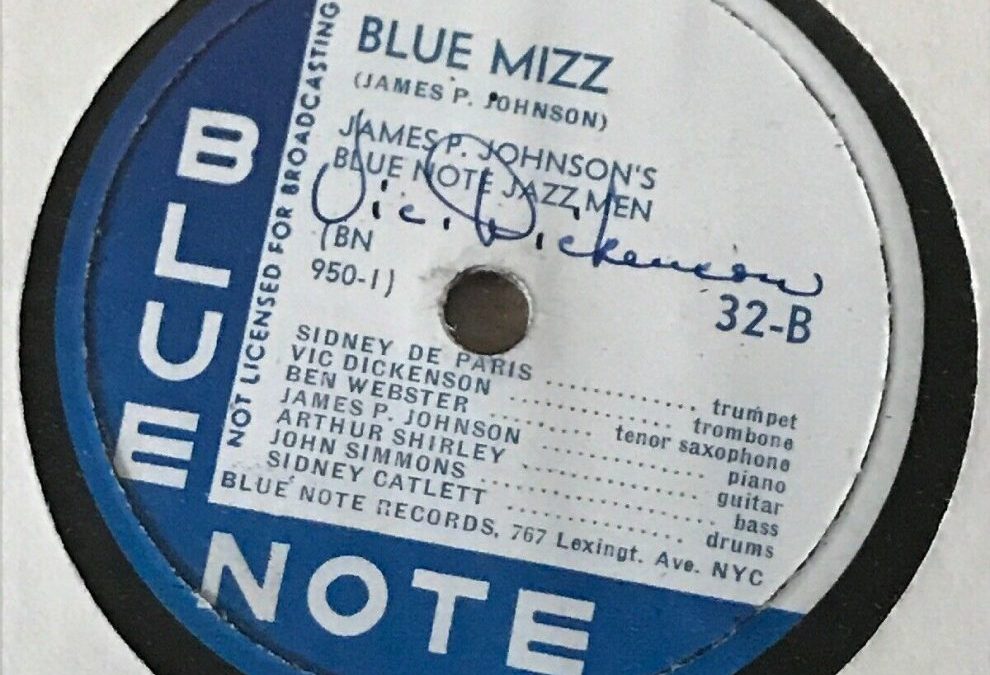 BLUE MIZZ
(JAMES P. JOHNSON)
JAMES P. JOHNSON'S
BLUE NOTE JAZZ MEN
Vic. Dickenson
(BN
950-1)
32-B
SIDNEY DE PARIS .................. trumpet
VIC DICKENSON .................. trombone
BEN WEBSTER .......... tenor saxophone
JAMES P. JOHNSON .................. piano
ARTHUR SHIRLEY .................. guitar
JOHN SIMMONS .................. bass
SIDNEY CATLETT .................. drums
BLUE NOTE RECORDS, 767 Lexingt. Ave. NYC
NOT LICENSED FOR BROADCASTING
BLUE
NOTE